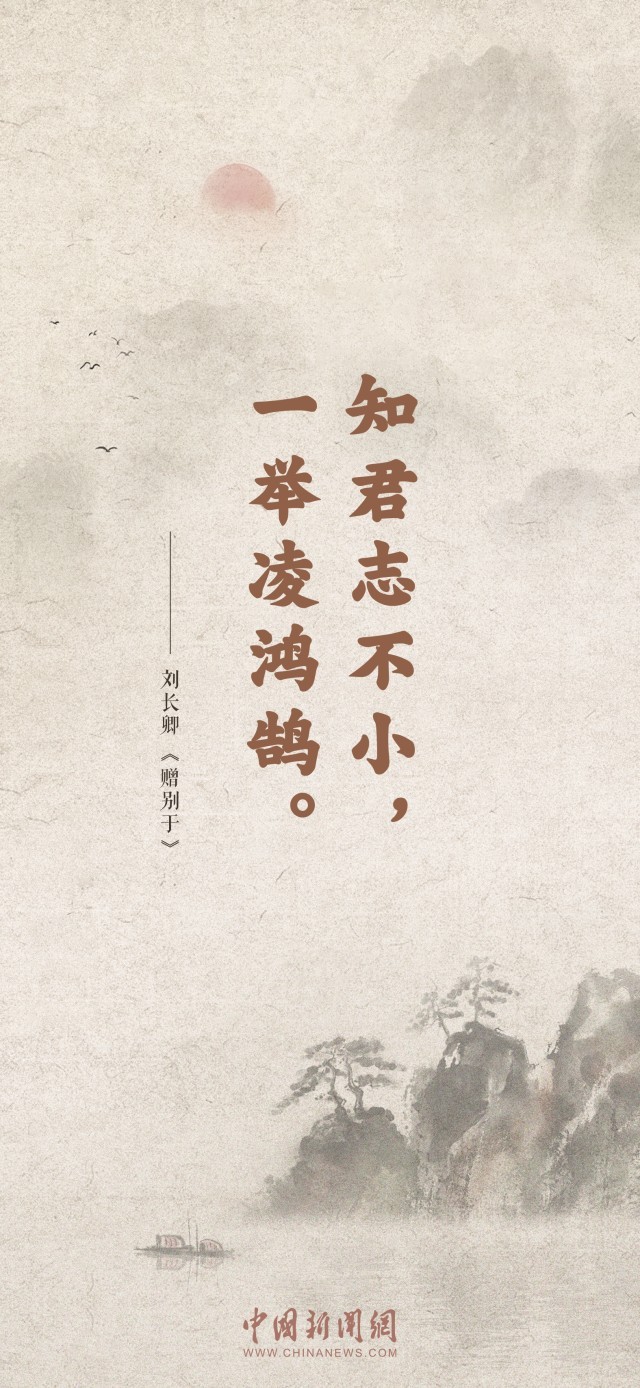 知君志不小，
一举凌鸿鹄。
——刘长卿《赠别于》
中国新闻網
WWW.CHINANEWS.COM